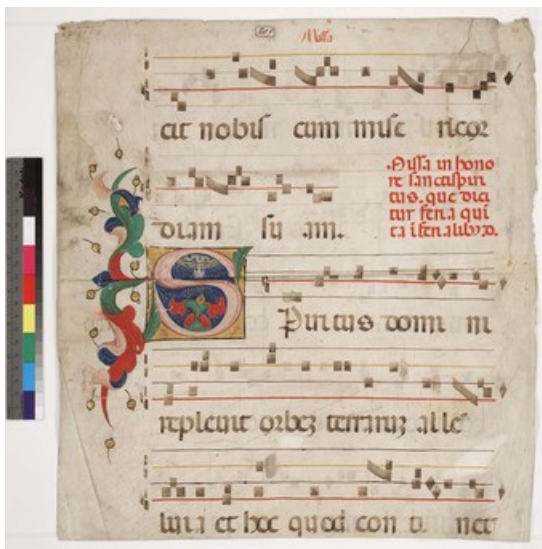 cit nobis cum mise ricor
Missa in hono
re sancti spiri
tus. que dici
tur feria qui
ta i feri alibus.
diam su am.
Spiritus domi ni
repleuit orbez terraruz alle
luia et hoc quod con ti net